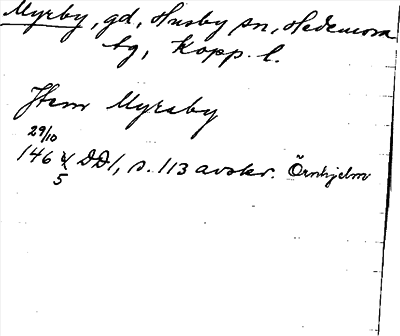 Myrby, gd, Husby sn, Hedemora
tg, Kopp. l.
Jtem Myraby
29/10
146 5 DD1, s. 113 avskr. Örnhjelm